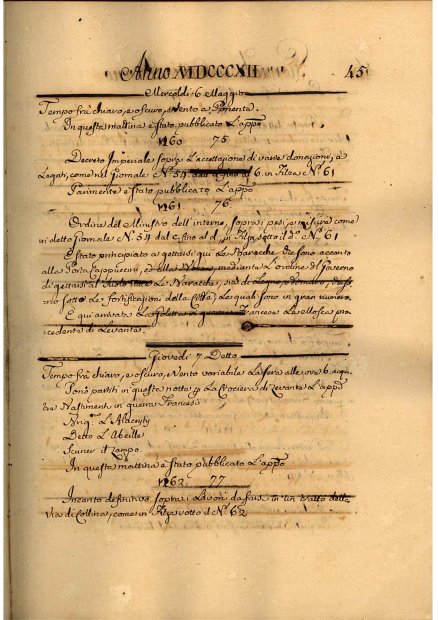 Anno MDCCCXII 45
Mercoldi 6 Maggio
Tempo frà chiaro, e oscuro, e Vento a Ponente.
In questa mattina è stato pubblicato L'appo
N 60 75
Decreto Imperiale sopra L'accettazione di varie donazioni, a
Legati, come nel Giornale N.° 54 6 in Filza N.° 61
Parimente è stato pubblicato L'appo
N 61 76
Ordine del Ministro dell'interno, sopra i pesi, e misure come
in detto Giornale N.° 54 dal in Filza sotto il d.° N.° 61
È stato principiato a gettarsi qui Le Baracche che sono accanto
alla Porta Cappuccini, ed alla mediante L'ordine del Governo
di gettarsi al Suolo tutte Le Baracche, sia di Legno,
sotto Le fortificazioni della Città, Le quali sono in gran numero.
È qui arrivata La Goletta in guerra Francese La
cedente di Levante.
Giovedi 7 Detto
Tempo frà chiaro, e oscuro, e Vento variabile La sera alle ore 6 acqua.
Sono partiti in questa notte p La Crociera di Levante L'app
Bastimenti in guerra Francesi
Brig L'Alacrity
Detto L'Abeille
Scuner il
In questa mattina è stato pubblicato L'appo
N 62 77
Incanto definitivo sopra i Lavori da farsi in un tratto della
Via di Collina, come in Filza sotto il N.° 62